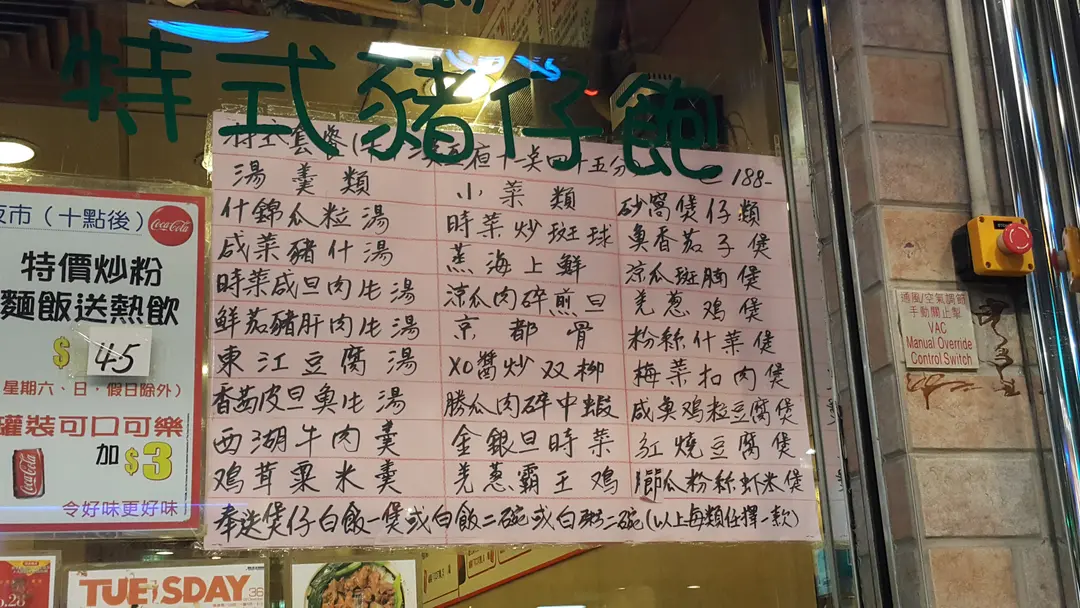 特式豬仔飽
特式套餐
188-
湯羹類
什錦瓜粒湯
咸菜豬什湯
時菜咸旦肉片湯
鮮茄豬肝肉片湯
東江豆腐湯
香茜皮旦魚片湯
西湖牛肉羹
鸡茸粟米羹
小菜類
時菜炒斑球
蒸海上鮮
凉瓜肉碎煎旦
京都骨
XO醬炒双柳
勝瓜肉碎中蝦
金銀旦時菜
羌葱霸王鸡
砂窩煲仔類
魚香茄子煲
凉瓜斑腩煲
羌葱鸡煲
粉絲什菜煲
梅菜扣肉煲
咸魚鸡粒豆腐煲
紅燒豆腐煲
節瓜粉絲虾米煲
奉送煲仔白飯一煲或白飯二碗或白粥二碗(以上每類任擇一款)
夜市（十點後）
Coca-Cola
特價炒粉
麵飯送熱飲
$45
星期六、日，假日除外)
罐裝可口可樂
加$3
令好味更好味
TUESDAY
36
通風/空氣調節
手動關止掣
VAC
Manual Override
Control Switch